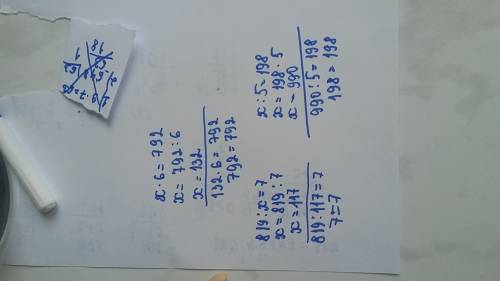 x·6=792
x=792:6
x=132
132·6=792
792=792
x:5=198
x=198·5
x=990
990:5=198
198=198
819:x=7
x=819:7
x=117
819:117=7
7=7